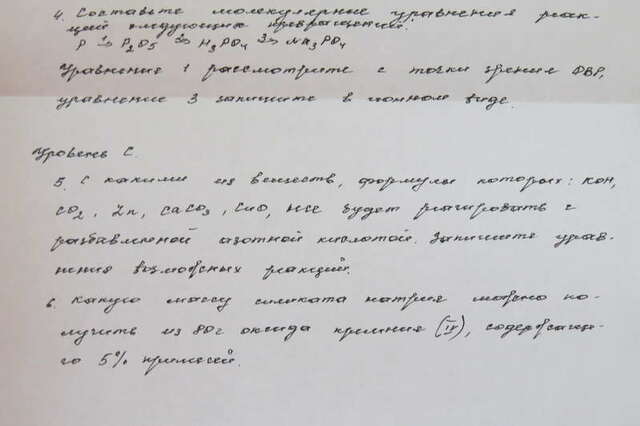 4. Составьте молекулярные уравнения реак-
ций следующих превращений:
P 1→ P2O5 2→ H3PO4 3→ Na3PO4
Уравнение 1 рассмотрите с точки зрения ОВР,
уравнение 3 запишите в ионном виде.
Уровень С.
5. С какими из веществ, формулы которых: KOH,
CO2, Zn, CaCO3, CuO, HCl будет реагировать с
разбавленной азотной кислотой. Запишите урав-
нения возможных реакций.
6. Какую массу силиката натрия можно по-
лучить из 80г оксида кремния (IV), содержаще-
го 5% примесей.